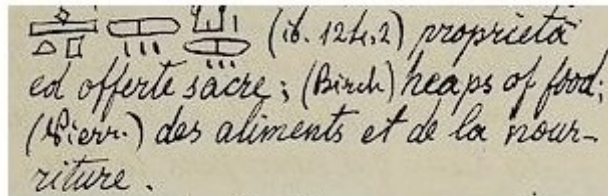 (ib. 124,2) proprietà
ed offerte sacre; (Birch) heaps of food;
(Pierr.) des aliments et de la nour-
riture.